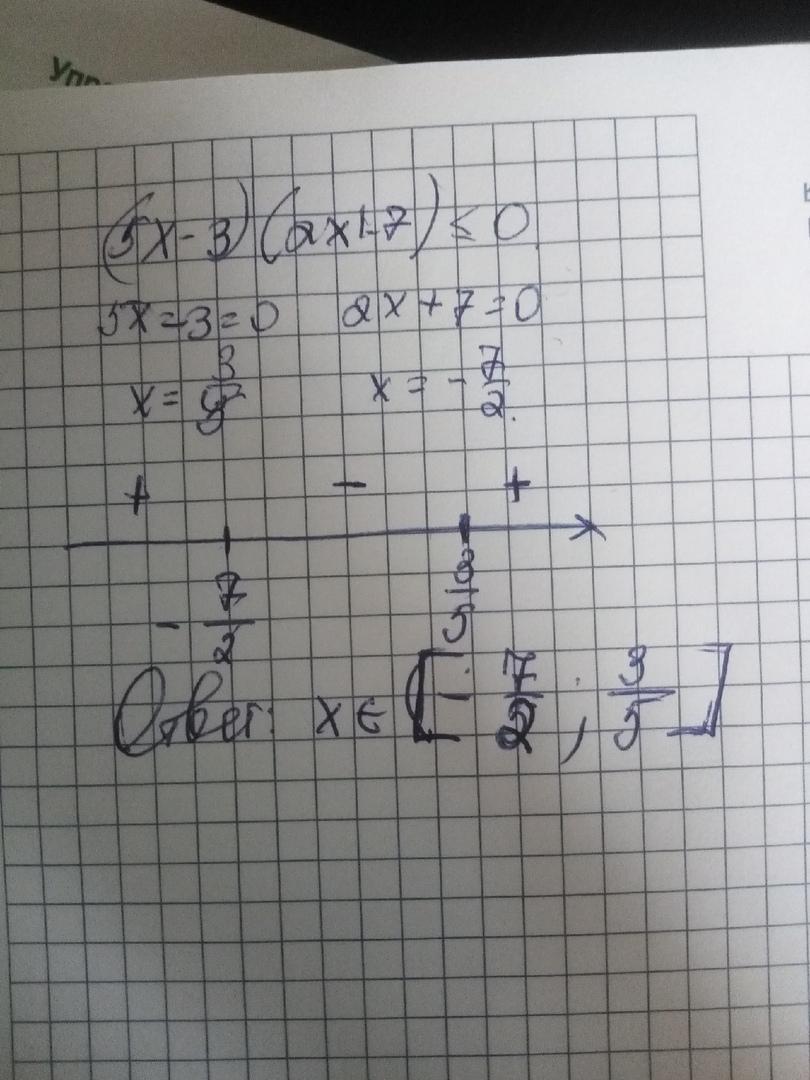 Упр
(5x-3)(2x+7) ≤ 0
5x-3=0 2x+7=0
x = 3/5 x = -7/2
+ - +
-7/2 3/5
Ответ: x ∈ [-7/2; 3/5]